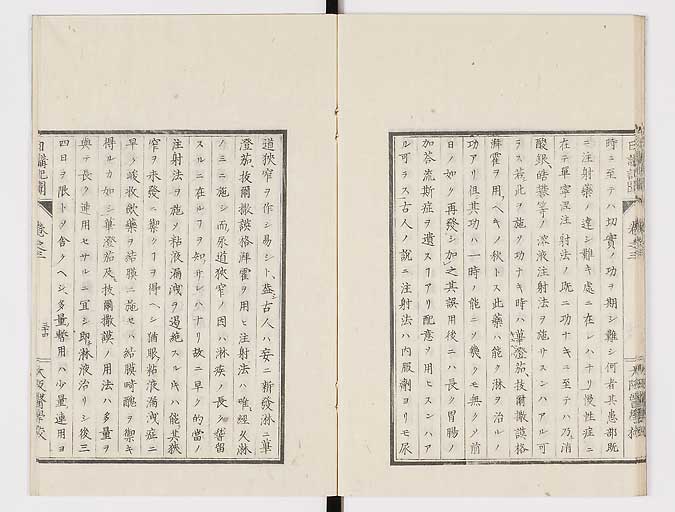 時ニ至テハ切實ノ功ヲ期シ難シ何者其患部既
ニ注射藥ノ達シ難キ處ニ在レハナリ慢性症ニ
在テ單寧涅注射法ノ既ニ功ナキニ至テハ乃消
酸銀皓礬等ノ溶液注射法ヲ施サスンハアル可
ラス若此ヲ施ク功ナキ時ハ蓽澄茄拔爾撒謨格
湃霍ヲ用ヘキノ秋トス此藥ハ能ク淋ヲ治ルノ
功アリ但其功ハ一時ノ能ニソ幾クモ無クソ前
日ノ如ク再發シ加之其誤用後ニハ長ク胃腸ノ
加荅流斯症ヲ遺スヿアリ配意ヲ用ヒスンハア
ル可ラス古人ノ說ニ注射法ハ内服劑ヨリモ尿
道狹窄ヲ作シ易シト蓋古人ハ妄ニ新發淋ニ蓽
澄茄拔爾撒謨格湃霍ヲ用ヒ注射法ハ唯經久淋
ノミニ施シ而尿道狹窄ノ因ハ淋疾ノ長ク稽留
スルニ在ルヿヲ知サレハナリ故ニ早ク的當ノ
注射法ヲ施ソ粘液漏洩ヲ遏絶スル片ハ能其狹
窄ヲ未發ニ禦クヿヲ得ヘシ猶眼粘液漏洩症ニ
早ク峻收歛藥ヲ結膜ニ施セハ結膜畸醜ヲ禦キ
得ルカ如シ蓽澄茄及拔爾撒謨ノ用法ハ多量ヲ
與テ長ク連用セサルニ宜シ即淋液治リシ後三
四日ヲ限トソ舍クヘシ多量暫用ハ少量連用ヨ
日講記聞 卷之三
大阪醫學校